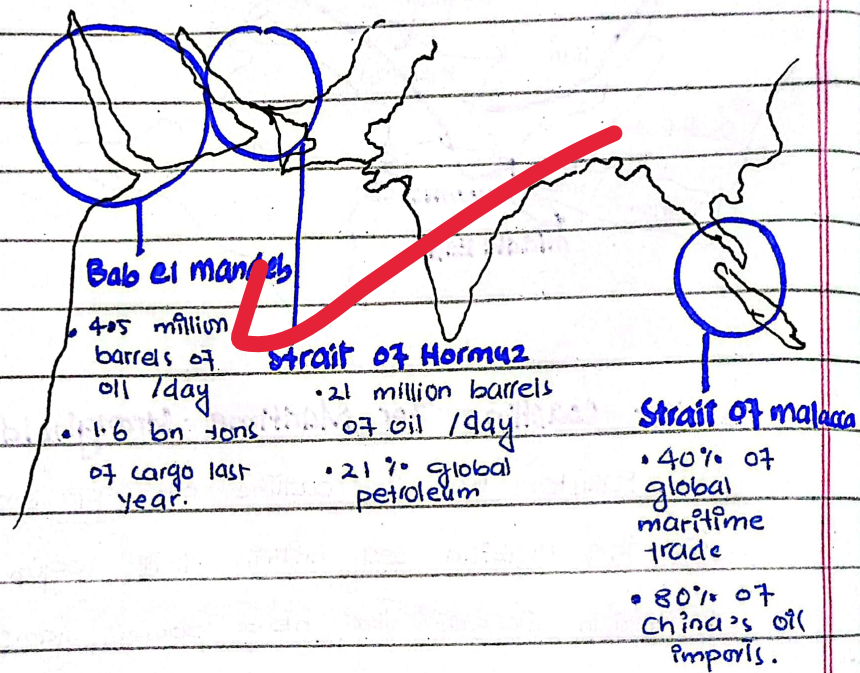 Bab el mandeb
• 4.5 million
barrels of
oil /day
• 1.6 bn tons
of cargo last
year.
Strait of Hormuz
• 21 million barrels
of oil /day
• 21 % global
petroleum
Strait of malacca
• 40% of
global
maritime
trade
• 80% of
China's oil
imports.